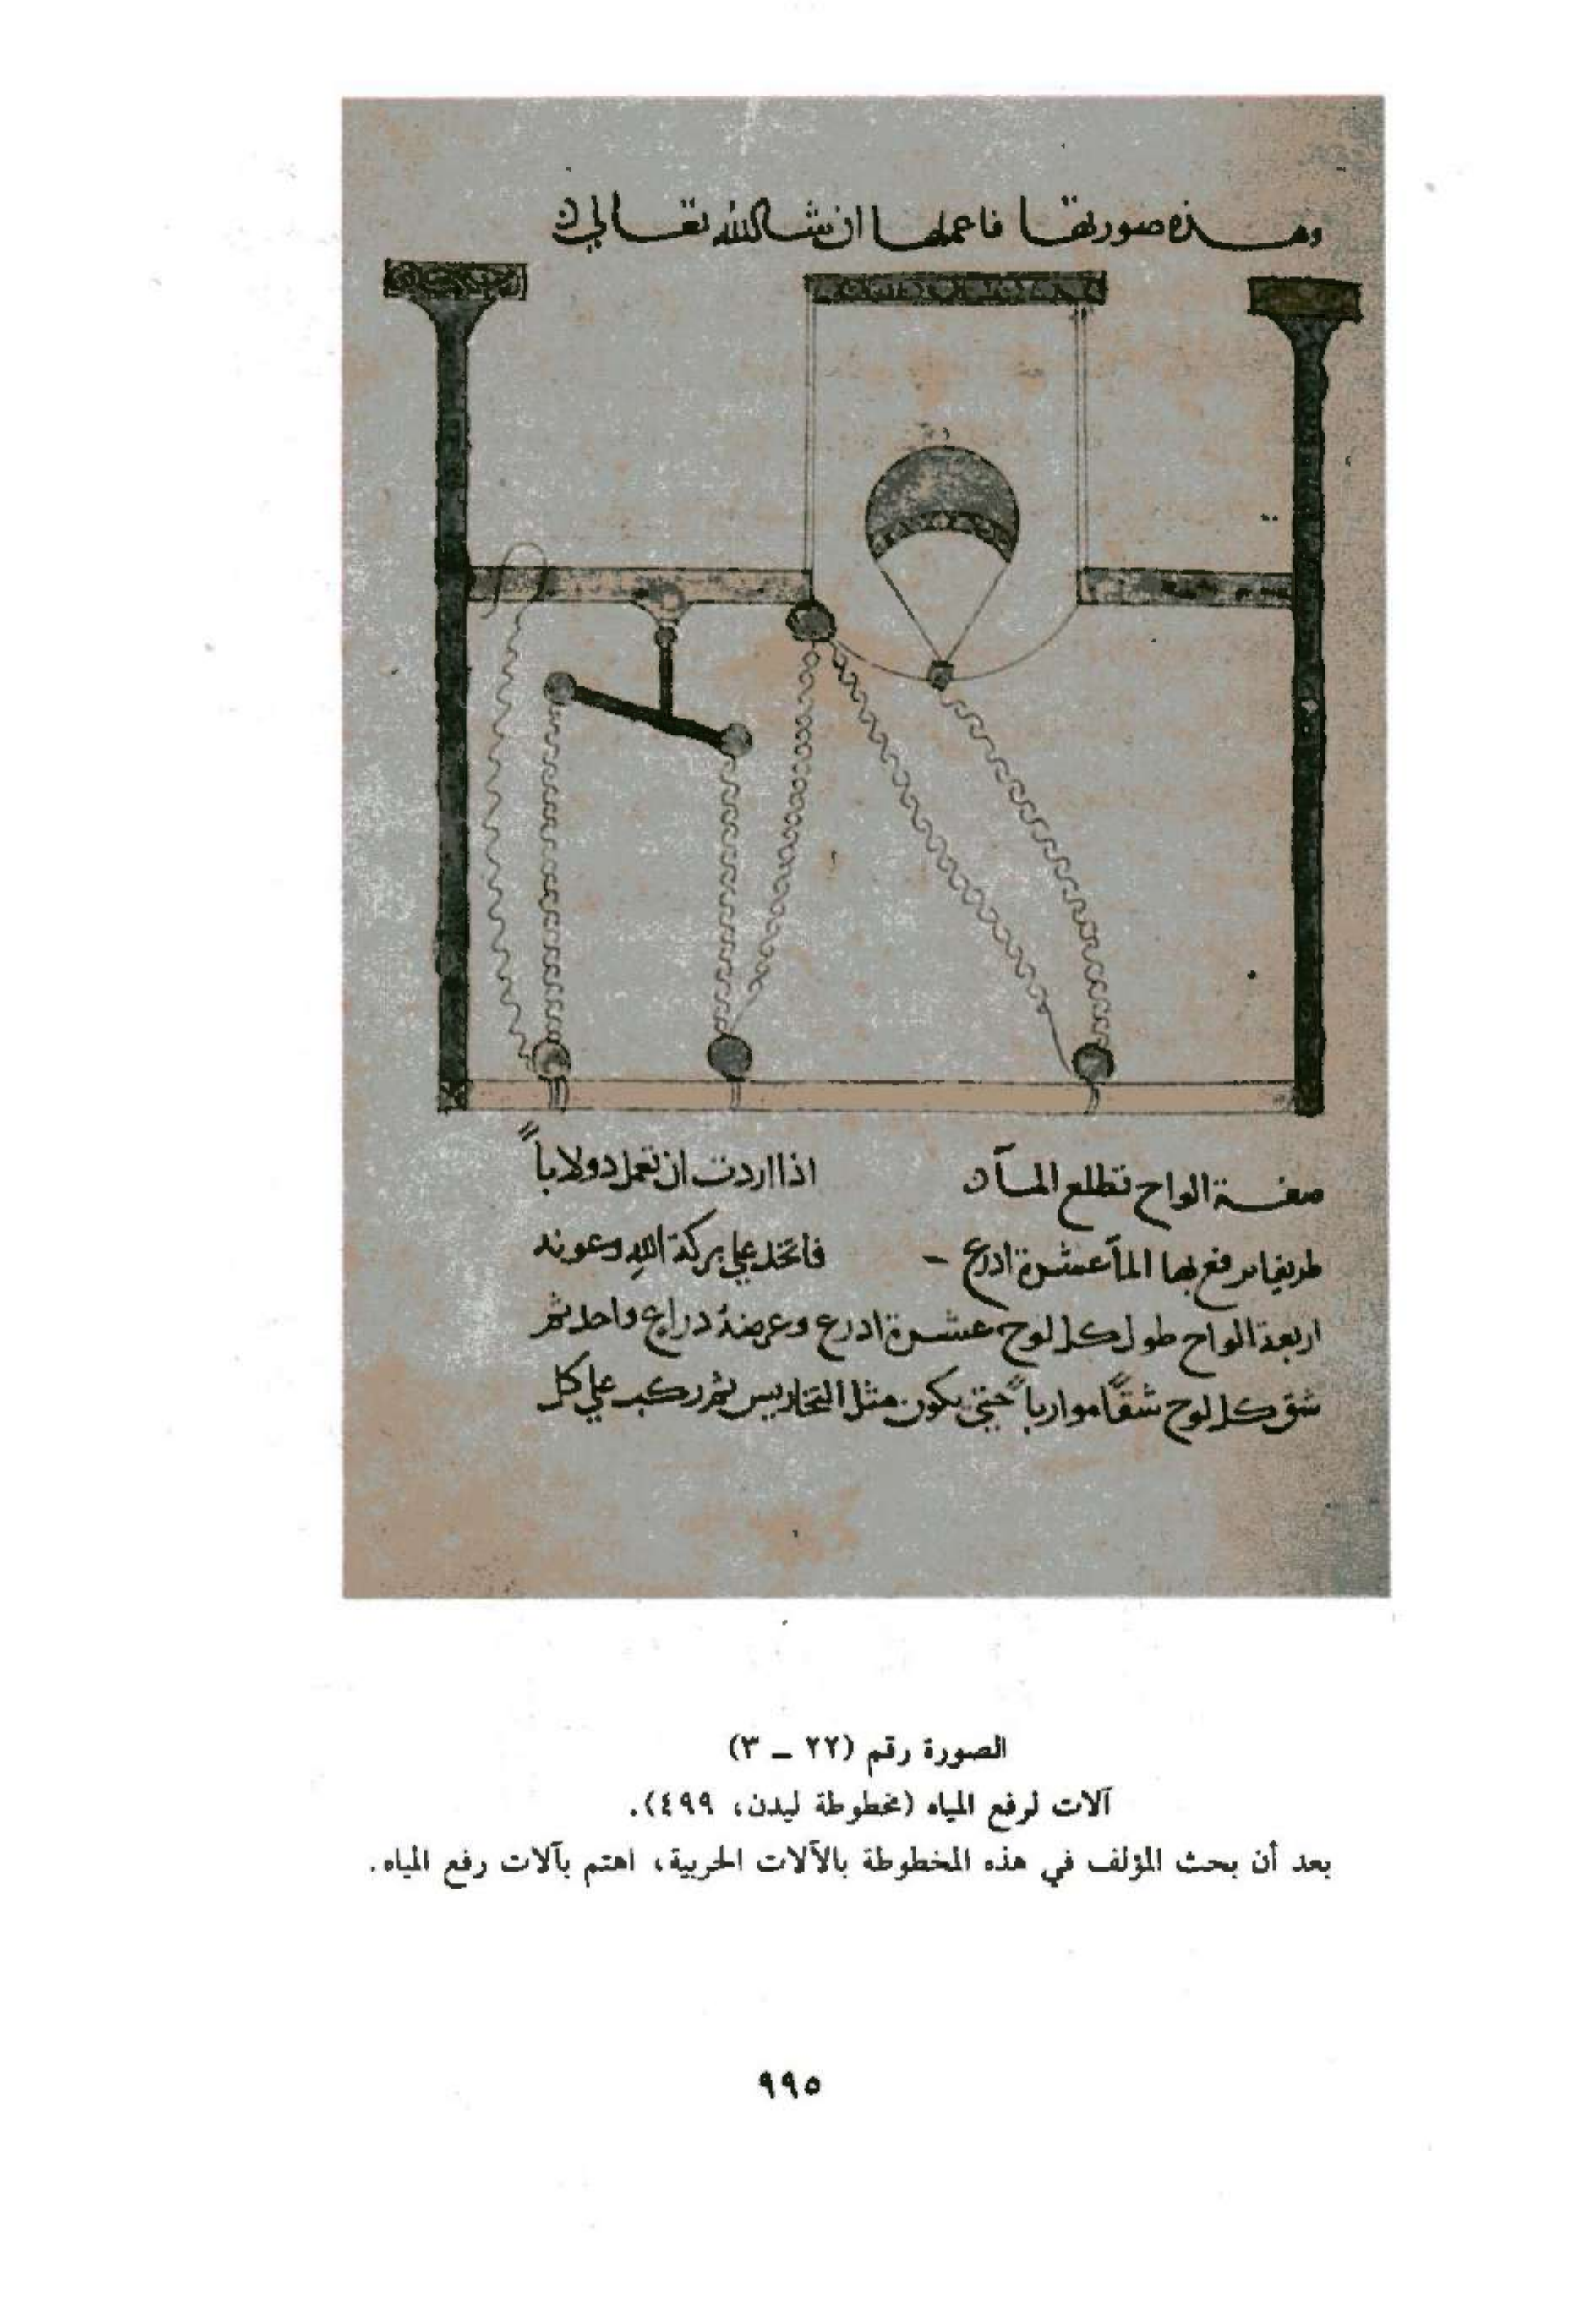 وهذه صورتها فاعملها ان شا الله تعالى
صفة الواح تطلع المآ اذا اردت ان تعمل دولاباً
طريفا يرفع بها المآ عشرة اذرع فاتخذ على بركة الله وعونه
اربعة الواح طول كل لوح عشرة اذرع وعرضهُ دراع واحد ثم
شق كل لوح شقاً موارباً حتى يكون مثل التخاريس ثم ركب على كل
الصورة رقم (٢٢ – ٣)
آلات لرفع المياه (مخطوطة ليدن، ٤٩٩).
بعد أن بحث المؤلف في هذه المخطوطة بالآلات الحربية، اهتم بآلات رفع المياه.
٩٩٥